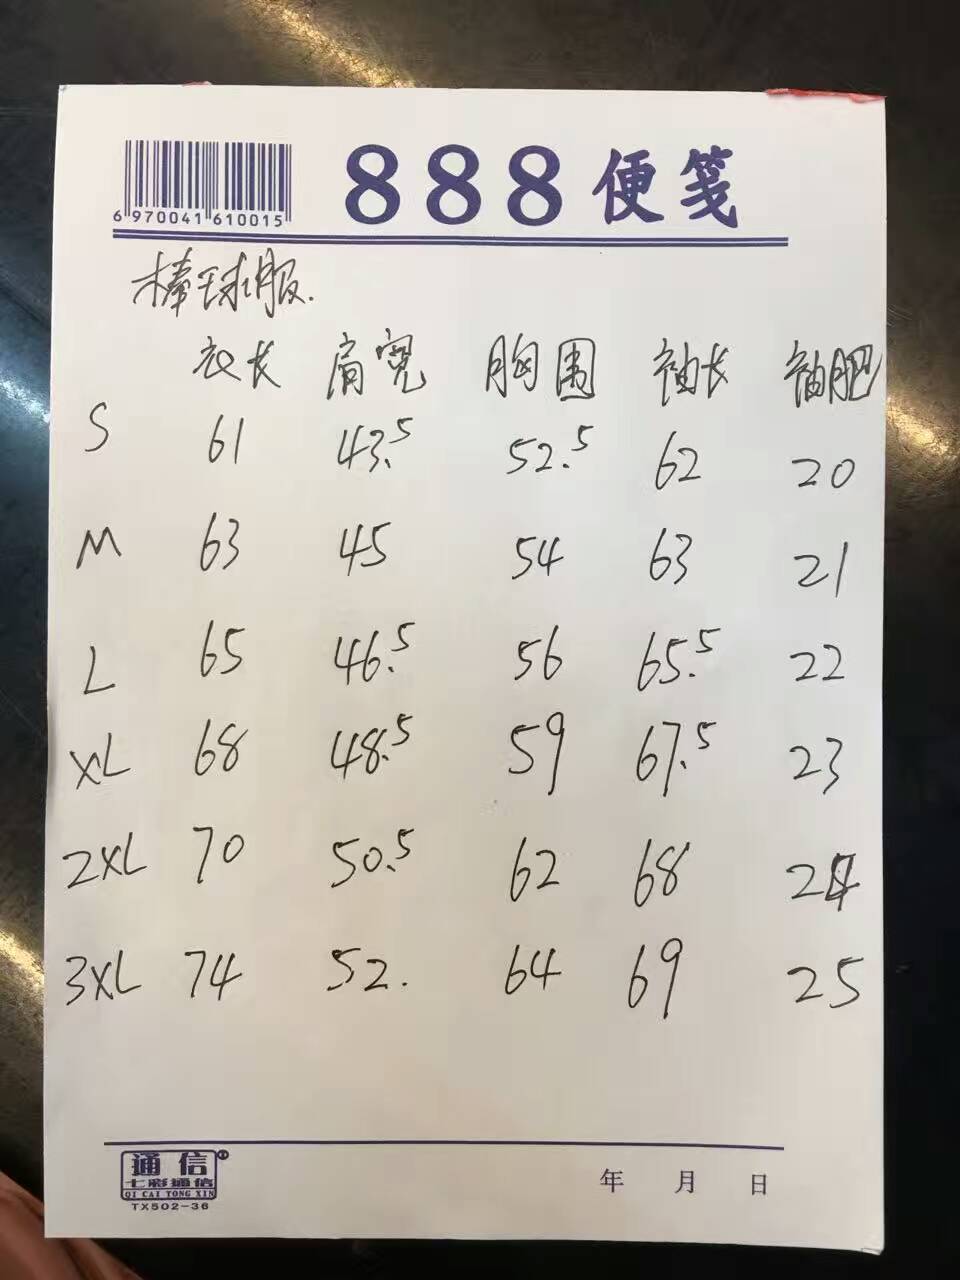 888便笺
6 970041 610015
棒球服.
衣长 肩宽 胸围 袖长 袖肥
S 61 43.5 52.5 62 20
M 63 45 54 63 21
L 65 46.5 56 65.5 22
XL 68 48.5 59 67.5 23
2XL 70 50.5 62 68 24
3XL 74 52. 64 69 25
通信
七彩通信
QI CAI TONG XIN
TX502-36
年 月 日